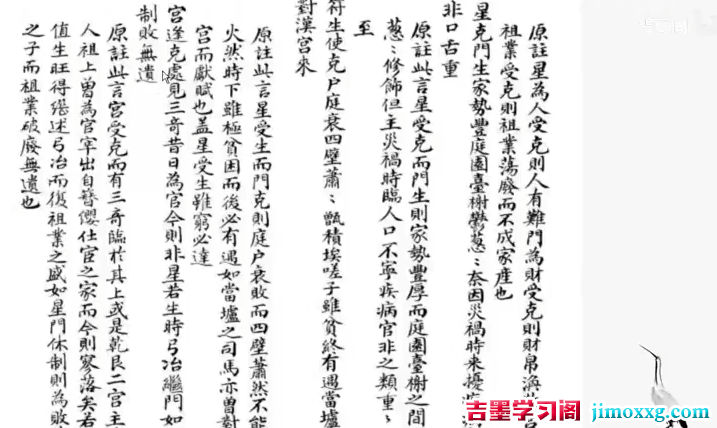 原註星為人受克則人有難門為財受克則財帛
祖業受克則祖業蕩廢而不成家產也
星克門生家勢豐庭園臺榭鬱葱:奈因災禍時来擾
非口舌重
原註此言星受克而門生則家勢豐厚而庭園臺榭之間
葱:修飾但主災禍時臨人口不寧疾病官非之類重:
至
符生使克户庭衰四壁蕭:甑積埃嗟子雖貧終有遇當壚
對漢宮來
原註此言星受生而門克則庭户衰敗而四壁蕭然不能
火然時下雖極貧困而後必有遇如當壚之司馬亦曾對
宮而獻賦也蓋星受生雖窮必達
宮逢克處見三奇昔日為官今則非星若生時弓冶繼門如
制敗無遺
原註此言宮受克而有三奇臨於其上或是乾艮二宮主
人祖上曾為官宰出自簪纓仕宦之家而今則寥落矣若
值生旺得继述弓冶而復祖業之盛如星門休制則為敗
之子而祖業破廢無遺也
吉墨学习阁 jimoxxg.com